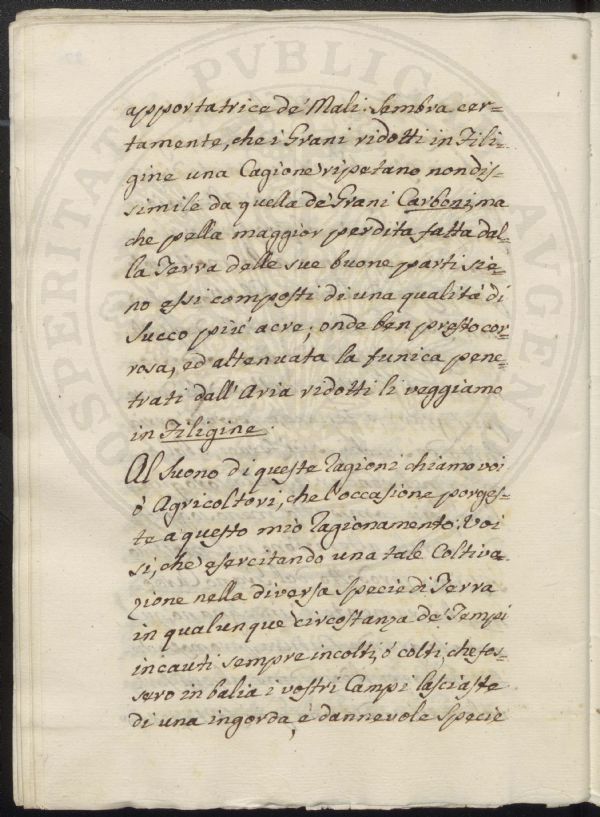 apportatrice de' Mali. Sembra cer-
tamente, che i Grani ridotti in Fili-
gine una Cagione ripetano non dis-
simile da quella de' Grani Carboni, ma
che pella maggior perdita fatta dal-
la Terra delle sue buone parti sie-
no essi composti di una qualità di
Succo più acre; onde ben presto cor-
rosa, ed attenuata la tunica pene-
trati dall'Aria ridotti li veggiamo
in Filigine.
Al Suono di queste ragioni chiamo voi
ò Agricoltori, che l'occasione porges-
te a questo mio ragionamento. Voi
si, che esercitando una tale Coltiva-
zione nella diversa specie di Terra
in qualunque circostanza de' Tempi
incauti sempre incolti, ò colti, che fos-
sero in balia i vostri Campi lasciaste
di una ingorda, è dannevole specie
PVBLICA
AVGENDAE
PROSPERITATI